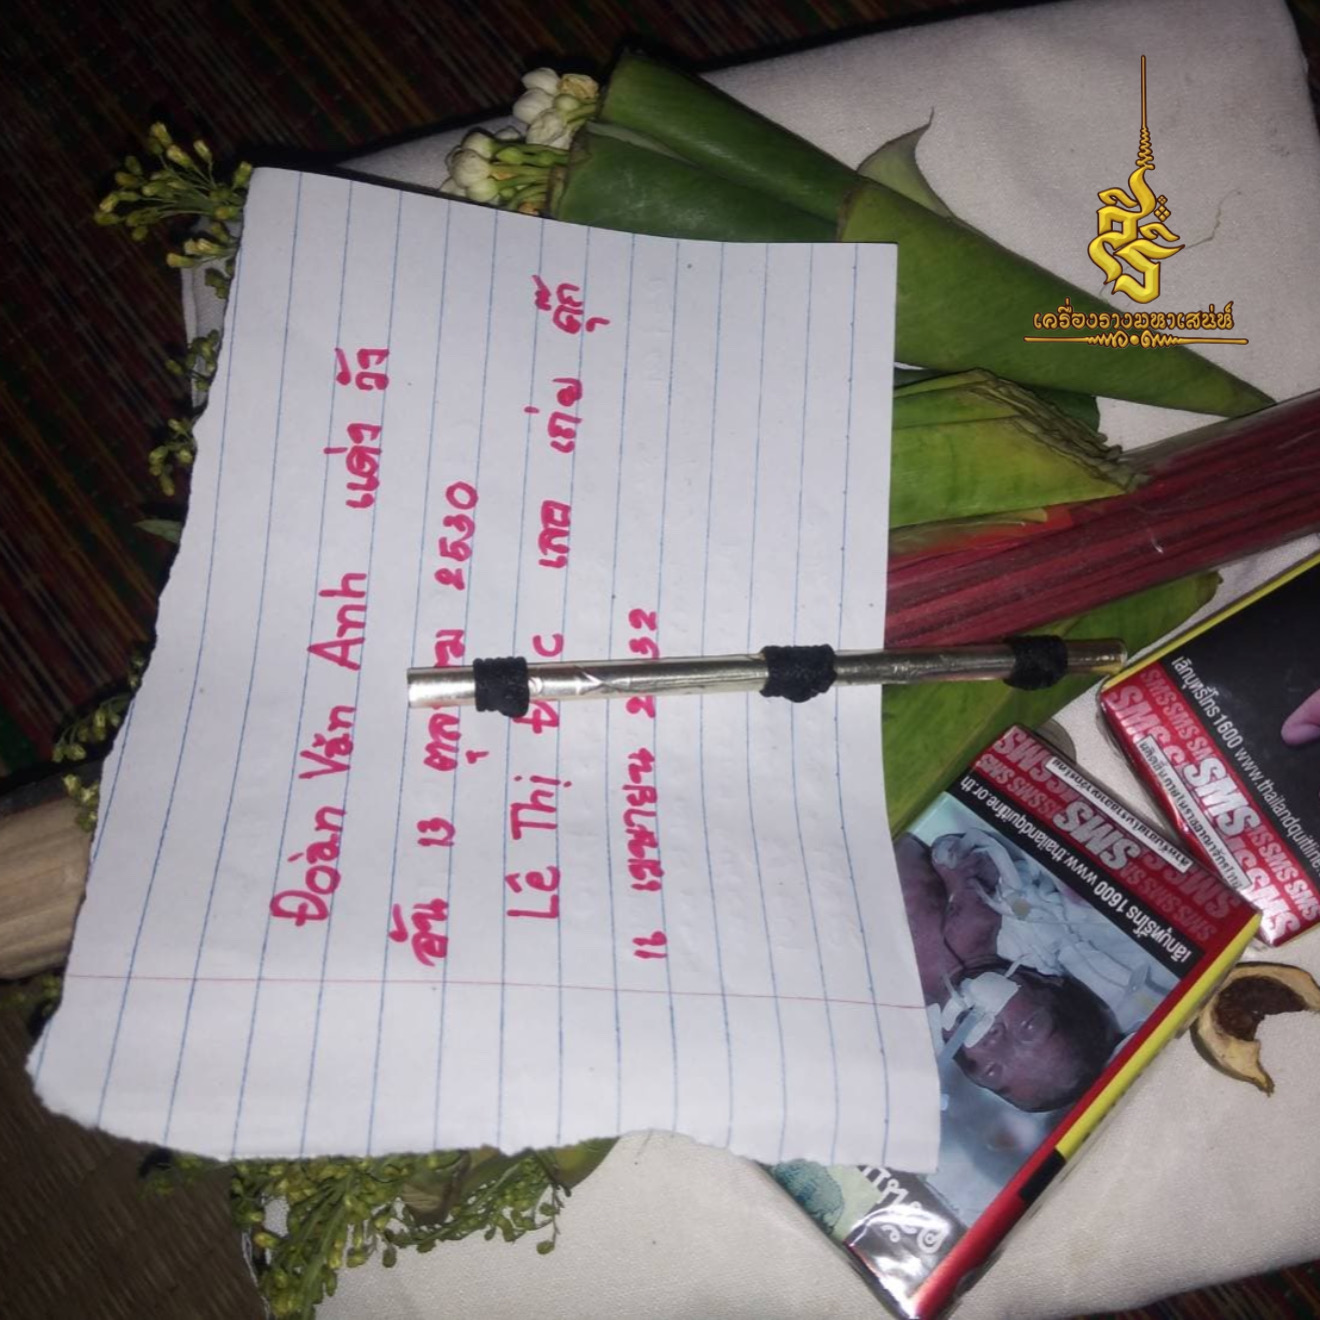 Đoàn Văn Anh แด่ว วัว
อัน 13 ตุลาคม 2530
Lê Thị Đ C เกอ เก่ม ดุ๊ก
16 เมษายน 2532
เครื่องรางมหาเสน่ห์
เลิกบุหรี่โทร 1600 www.thailandquitline.or.th
SMS SMS SMS
SMS
เลิกบุหรี่โทร 1600 www.thailandquitline
SMS SMS SMS
SMS